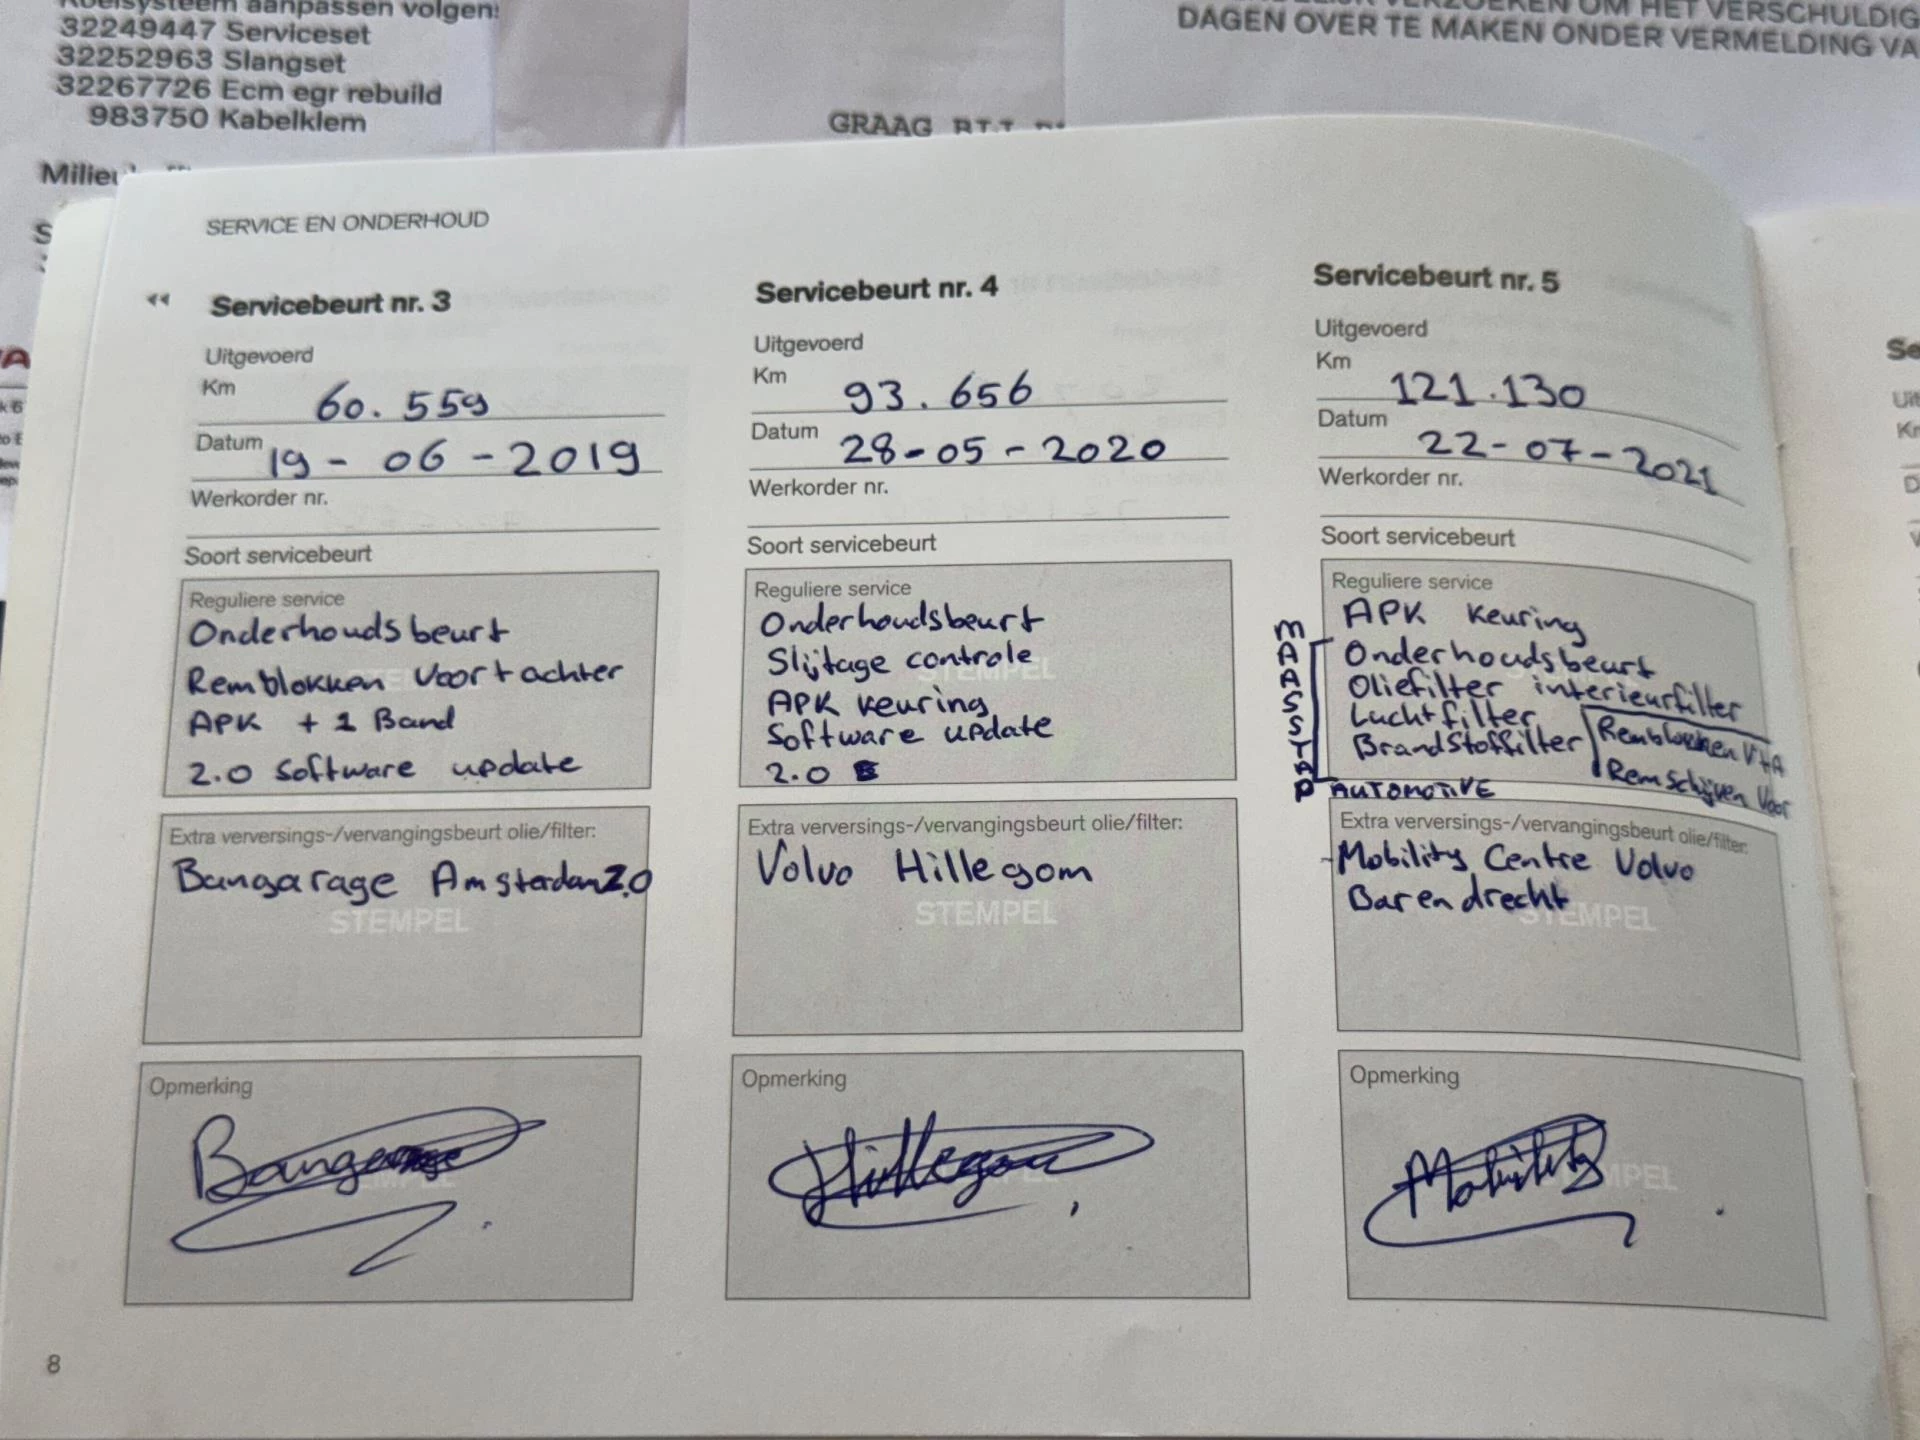 Koelsysteem aanpassen volgens
32249447 Serviceset
32252963 Slangset
32267726 Ecm egr rebuild
983750 Kabelklem
DAGEN OVER TE MAKEN ONDER VERMELDING VA
GRAAG
SERVICE EN ONDERHOUD
Servicebeurt nr. 3
Uitgevoerd
Km 60.559
Datum 19-06-2019
Werkorder nr.
Soort servicebeurt
Reguliere service
Onderhoudsbeurt
Remblokken voor + achter
APK + 1 Band
2.0 Software update
Extra verversings-/vervangingsbeurt olie/filter:
Bangarage Amsterdam Z.O
STEMPEL
Opmerking
Bangarage
Servicebeurt nr. 4
Uitgevoerd
Km 93.656
Datum 28-05-2020
Werkorder nr.
Soort servicebeurt
Reguliere service
Onderhoudsbeurt
Slijtage controle
STEMPEL
APK keuring
Software update
2.0
Extra verversings-/vervangingsbeurt olie/filter:
Volvo Hillegom
STEMPEL
Opmerking
Hillegom
Servicebeurt nr. 5
Uitgevoerd
Km 121.130
Datum 22-07-2021
Werkorder nr.
Soort servicebeurt
Reguliere service
APK keuring
Onderhoudsbeurt
Oliefilter interieurfilter
Luchtfilter
Brandstoffilter
Remblokken V+A
Remschijven Voor
MAASSTAP AUTOMOTIVE
Extra verversings-/vervangingsbeurt olie/filter:
-Mobility Centre Volvo
Barendrecht
STEMPEL
Opmerking
Mobility
8